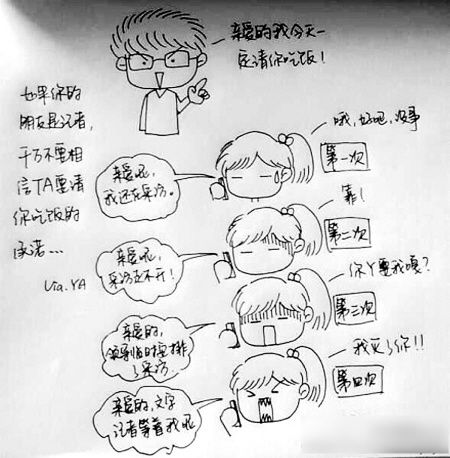 亲爱的我今天一
定请你吃饭!
如果你的
朋友是记者,
千万不要相
信TA要请
你吃饭的
承诺...
via.YA
哦,好吧,没事
第一次
亲爱呢,
我还在采访。
靠!
第二次
亲爱呢,
采访走不开!
你丫耍我嘎?
第三次
亲爱的,
领导临时安排
了采访
我灭了你!!
第四次
亲爱的,文字
记者等着我呢